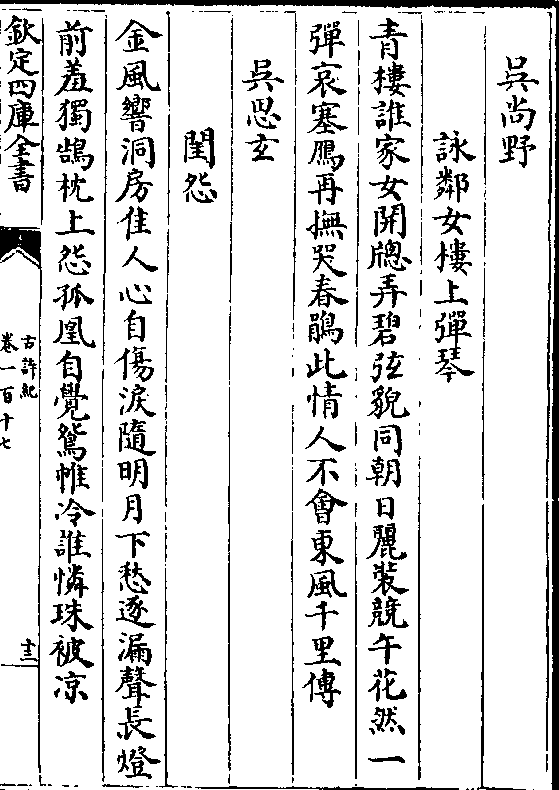 吳尚野
詠鄰女樓上彈琴
青樓誰家女開牕弄碧弦貌同朝日麗裝競午花然一
彈哀塞鴈再撫哭春鵑此情人不會東風千里傳
吳思玄
閨怨
金風響洞房佳人心自傷淚隨明月下愁逐漏聲長燈
前羞獨鵠枕上怨孤凰自覺鴛帷冷誰憐珠被凉
欽定四庫全書
古詩紀
卷一百十七
十三